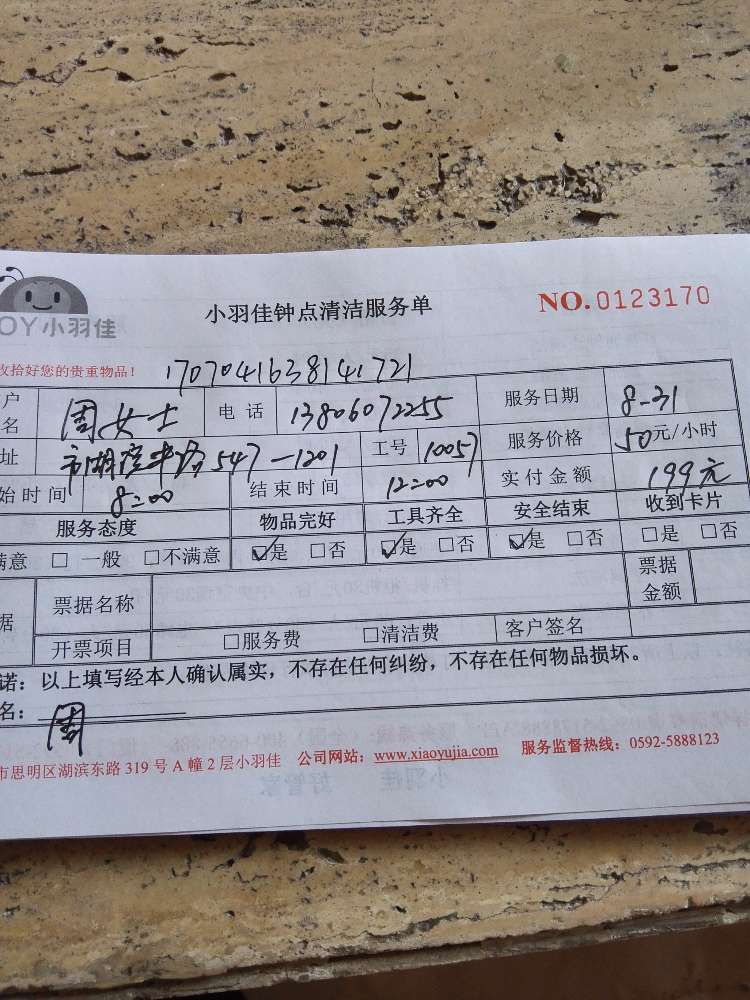 OY小羽佳
小羽佳钟点清洁服务单
NO.0123170
收拾好您的贵重物品！
1707041638141721
户名 周女士 电话 13806072255 服务日期 8-31
址 547-1201 工号 10057 服务价格 50元/小时
始时间 8:00 结束时间 12:00 实付金额 199元
服务态度 物品完好 工具齐全 安全结束 收到卡片
满意 □一般 □不满意 ☑是 □否 ☑是 □否 ☑是 □否 □是 □否
据 票据名称 票据金额
开票项目 □服务费 □清洁费 客户签名
诺：以上填写经本人确认属实，不存在任何纠纷，不存在任何物品损坏。
名：周
市思明区湖滨东路319号A幢2层小羽佳 公司网站：www.xiaoyujia.com 服务监督热线：0592-5888123